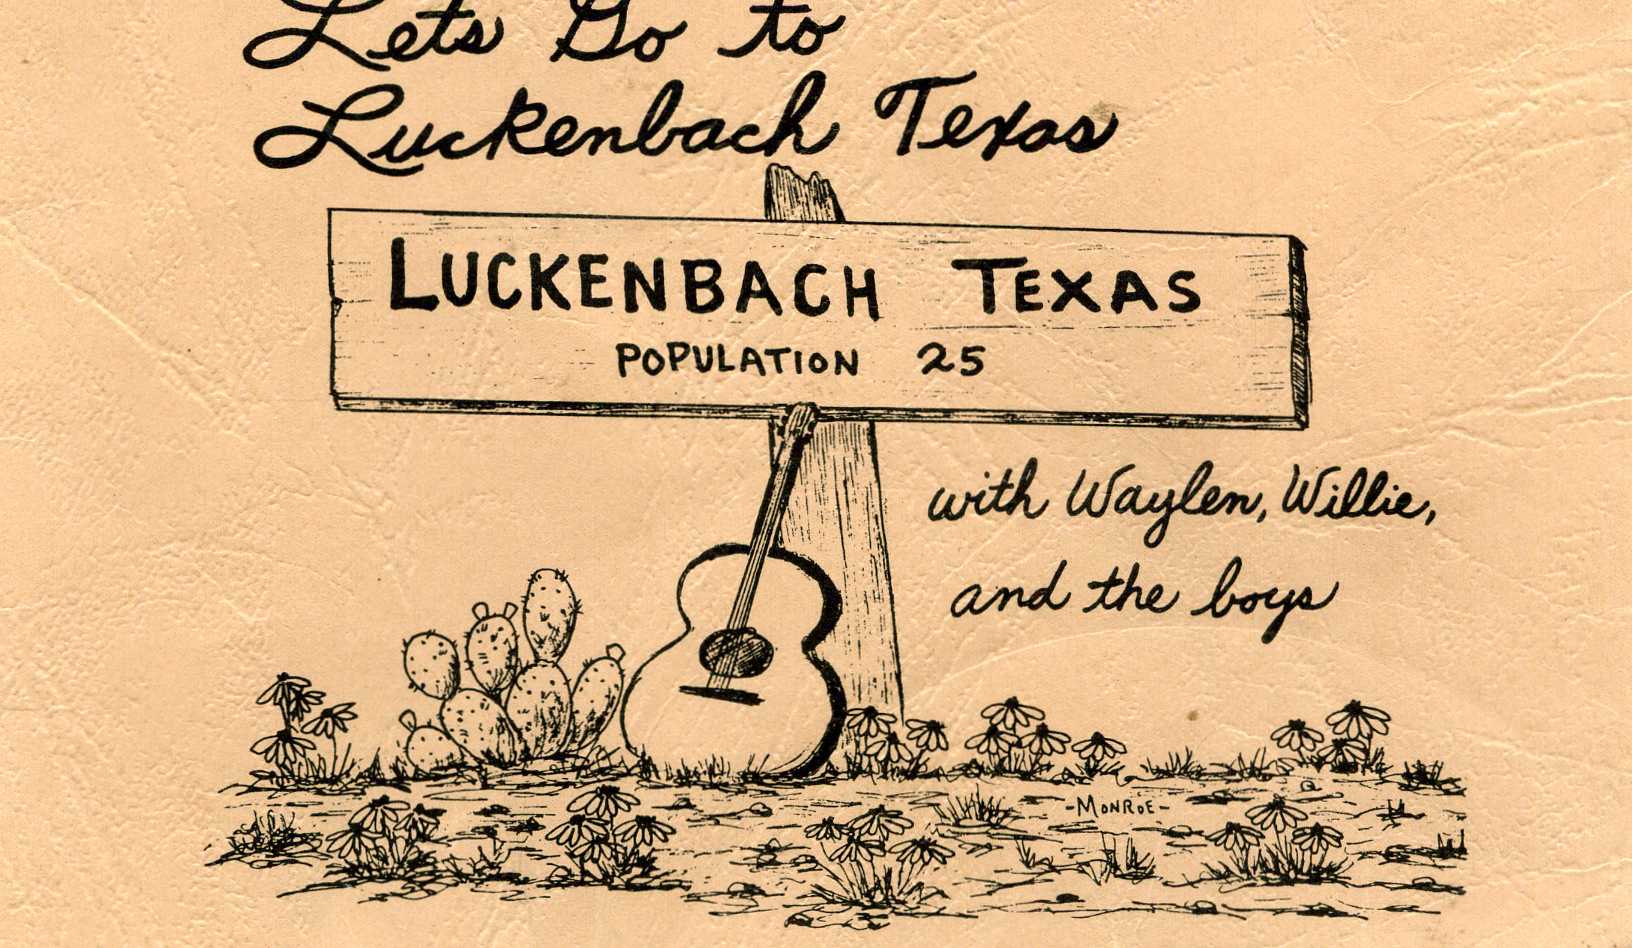 Lets Go to
Luckenbach Texas
LUCKENBACH TEXAS
POPULATION 25
with Waylen, Willie,
and the boys
-MONROE-